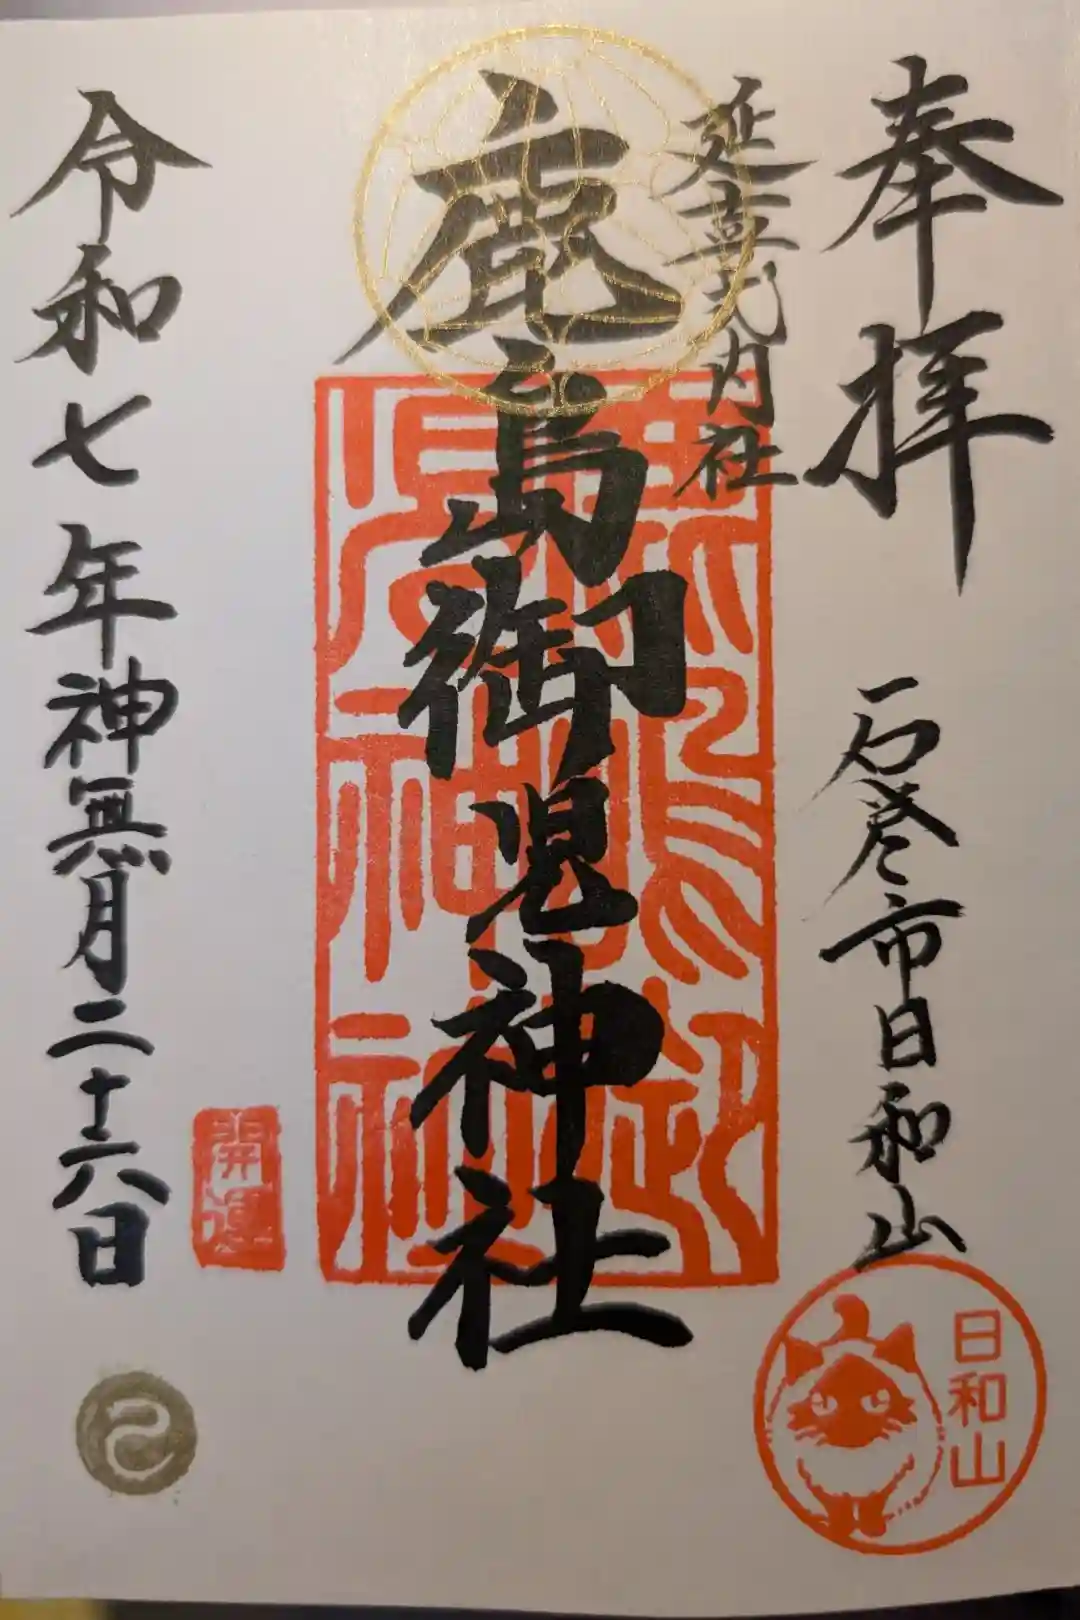 奉拝
石巻市日和山
延喜式内社
鹿島御児神社
令和七年神無月二十六日
開運
日和山